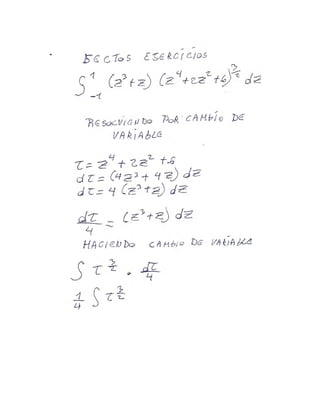 SECTOS ESERCICIOS
∫₋₁¹ (z³+z) (z⁴+2z²+6)^(3/2) dz
RESOLVIENDO POR CAMBIO DE
VARIABLE
τ = z⁴ + 2z² + 6
dτ = (4z³ + 4z) dz
dτ = 4 (z³+z) dz
dτ/4 = (z³+z) dz
HACIENDO CAMBIO DE VARIABLE
∫ τ^(3/2) · dτ/4
1/4 ∫ τ^(3/2)